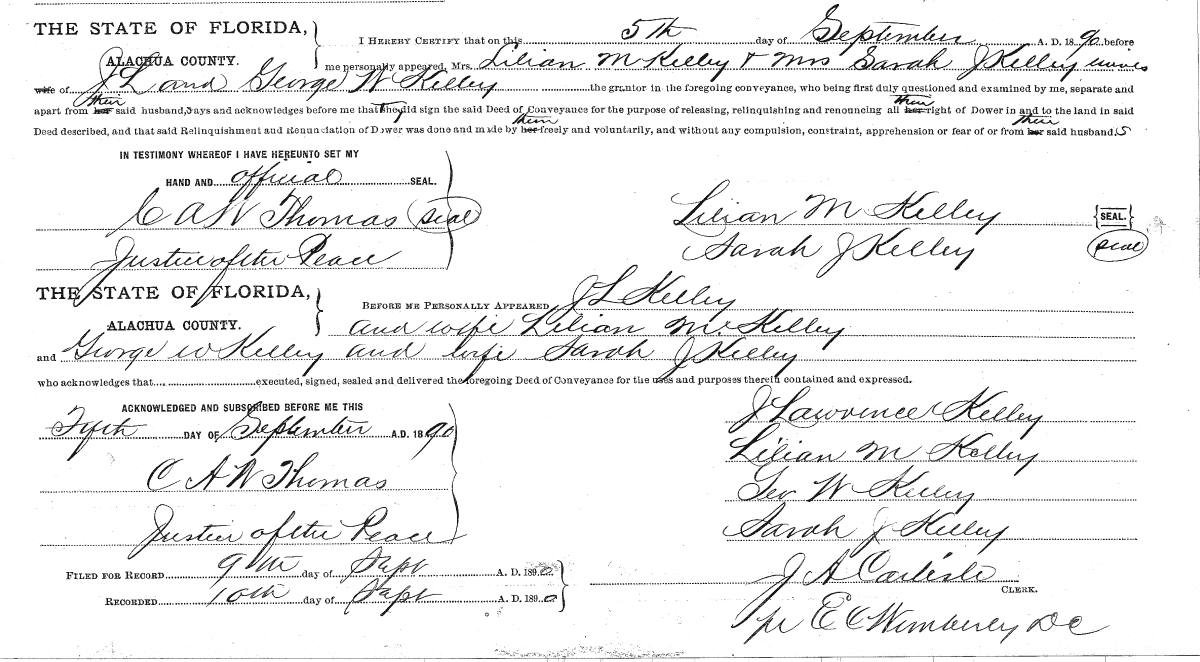 THE STATE OF FLORIDA,
ALACHUA COUNTY.
I HEREBY CERTIFY that on this 5th day of September A. D. 1890 before
me personally appeared, Mrs. Lilian M Kelley & Mrs Sarah J Kelley wives
wife of J L and George W Kelley the grantor in the foregoing conveyance, who being first duly questioned and examined by me, separate and
their their
apart from her said husband,s says and acknowledges before me that they did sign the said Deed of Conveyance for the purpose of releasing, relinquishing and renouncing all her right of Dower in and to the land in said
them their
Deed described, and that said Relinquishment and Renunciation of Dower was done and made by her freely and voluntarily, and without any compulsion, constraint, apprehension or fear of or from her said husband.s
IN TESTIMONY WHEREOF I HAVE HEREUNTO SET MY
HAND AND official SEAL.
C A W Thomas (seal)
Justice of the Peace
Lilian M Kelley {SEAL.}
Sarah J Kelley (seal)
THE STATE OF FLORIDA,
ALACHUA COUNTY.
BEFORE ME PERSONALLY APPEARED J L Kelley
and wife Lilian M. Kelley
and George W Kelley and wife Sarah J Kelley
who acknowledges that executed, signed, sealed and delivered the foregoing Deed of Conveyance for the uses and purposes therein contained and expressed.
ACKNOWLEDGED AND SUBSCRIBED BEFORE ME THIS
Fifth DAY OF September A.D. 1890
C A W Thomas
Justice of the Peace
J Lawrence Kelley
Lilian M Kelley
Geo W Kelley
Sarah J Kelley
FILED FOR RECORD 9th day of Sept A. D. 1890
RECORDED 10th day of Sept A. D. 1890
J A Carlisle
CLERK.
pr E C Wimberley DC